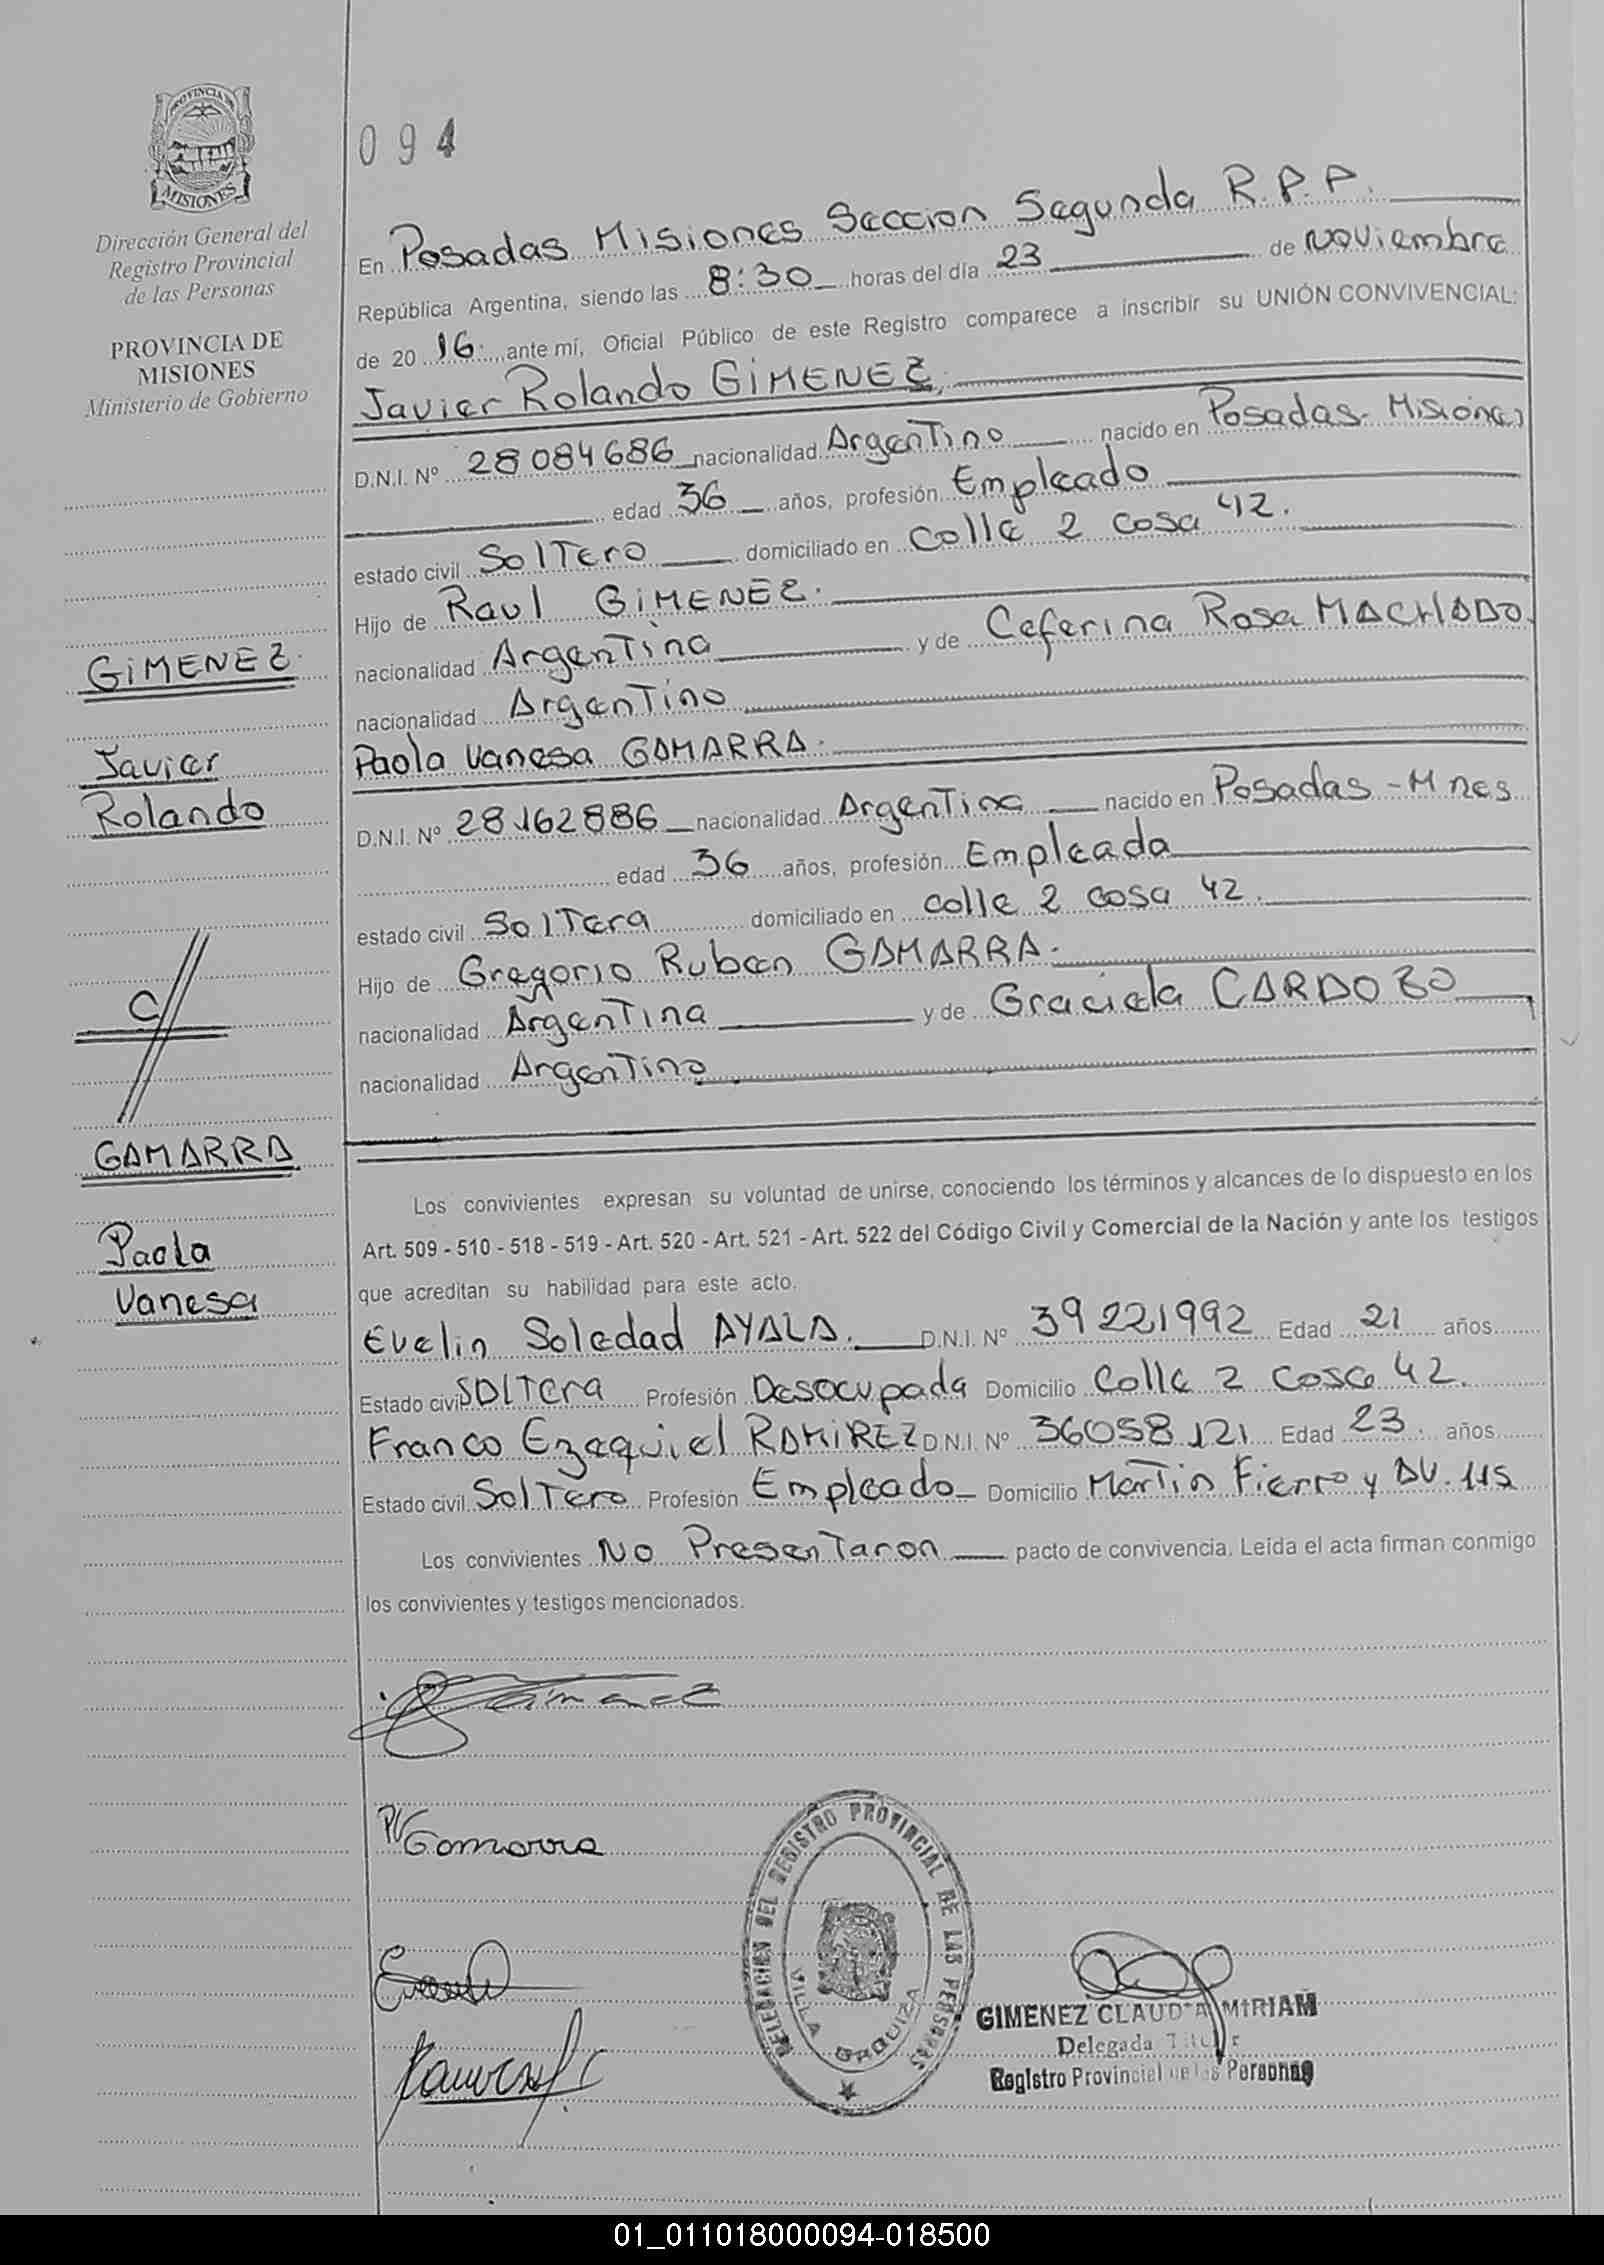 PROVINCIA DE
MISIONES
Dirección General del
Registro Provincial
de las Personas
PROVINCIA DE
MISIONES
Ministerio de Gobierno
094
En Posadas Misiones Seccion Segunda R.P.P.
República Argentina, siendo las 8:30 horas del día 23 de noviembre
de 2016 ante mí, Oficial Público de este Registro comparece a inscribir su UNIÓN CONVIVENCIAL:
Javier Rolando GIMENEZ
D.N.I. Nº 28084686 nacionalidad Argentino nacido en Posadas - Misiones
edad 36 años, profesión Empleado
estado civil Soltero domiciliado en Calle 2 casa 42.
Hijo de Raul GIMENEZ.
nacionalidad Argentina y de Ceferina Rosa MACHADO.
nacionalidad Argentino
Paola Vanesa GAMARRA.
D.N.I. Nº 28162886 nacionalidad Argentina nacido en Posadas - Mnes
edad 36 años, profesión Empleada
estado civil Soltera domiciliado en calle 2 casa 42.
Hijo de Gregorio Ruben GAMARRA.
nacionalidad Argentina y de Graciela CARDOZO
nacionalidad Argentino
GIMENEZ
Javier
Rolando
C/
GAMARRA
Paola
Vanesa
Los convivientes expresan su voluntad de unirse, conociendo los términos y alcances de lo dispuesto en los
Art. 509 - 510 - 518 - 519 - Art. 520 - Art. 521 - Art. 522 del Código Civil y Comercial de la Nación y ante los testigos
que acreditan su habilidad para este acto.
Evelin Soledad AYALA. D.N.I. Nº 39221992 Edad 21 años
Estado civil SOLTERA Profesión Desocupada Domicilio Calle 2 Casa 42.
Franco Ezequiel RAMIREZ D.N.I. Nº 36058121 Edad 23 años
Estado civil Soltero Profesión Empleado Domicilio Martin Fierro y AV. 115
Los convivientes No Presentaron pacto de convivencia. Leída el acta firman conmigo
los convivientes y testigos mencionados.
Gimenez
PV Gamarra
DELEGACION DEL REGISTRO PROVINCIAL DE LAS PERSONAS
VILLA URQUIZA
GIMENEZ CLAUDIA MIRIAM
Delegada Titular
Registro Provincial de las Personas
01_011018000094-018500